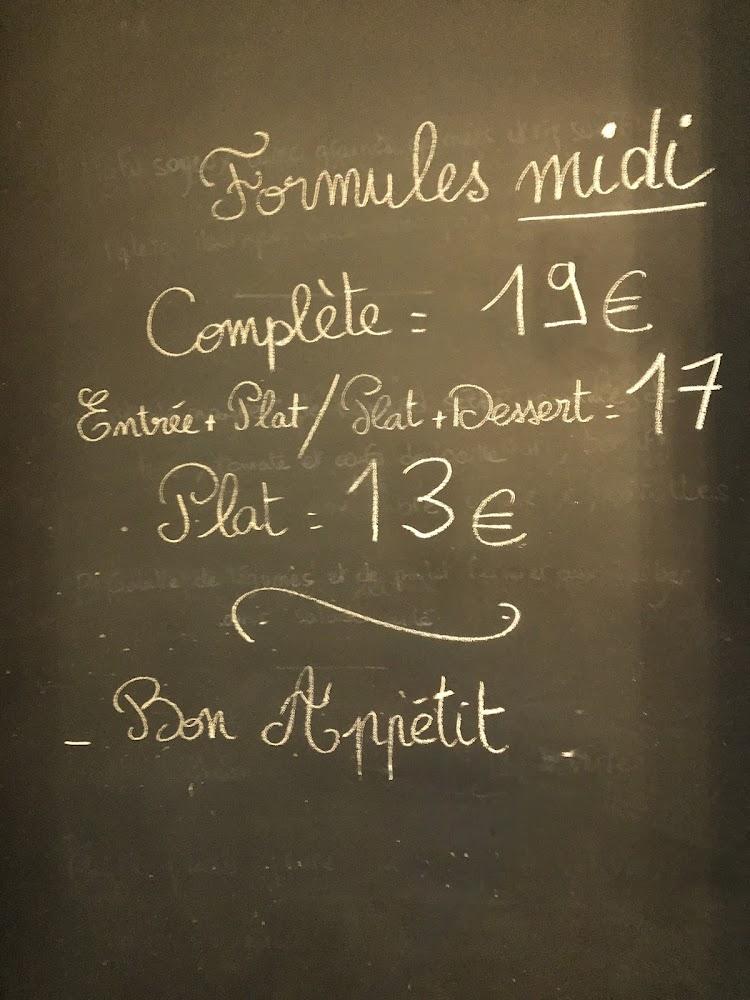 Formules midi
Complète = 19€
Entrée + Plat / Plat + Dessert = 17
Plat = 13€
Bon Appétit